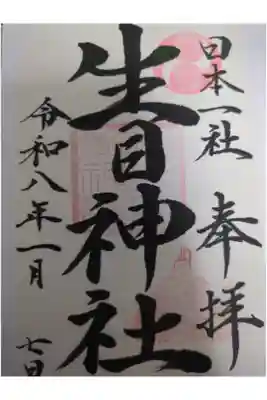 日本一社 奉拝
生目神社
令和八年一月 七日